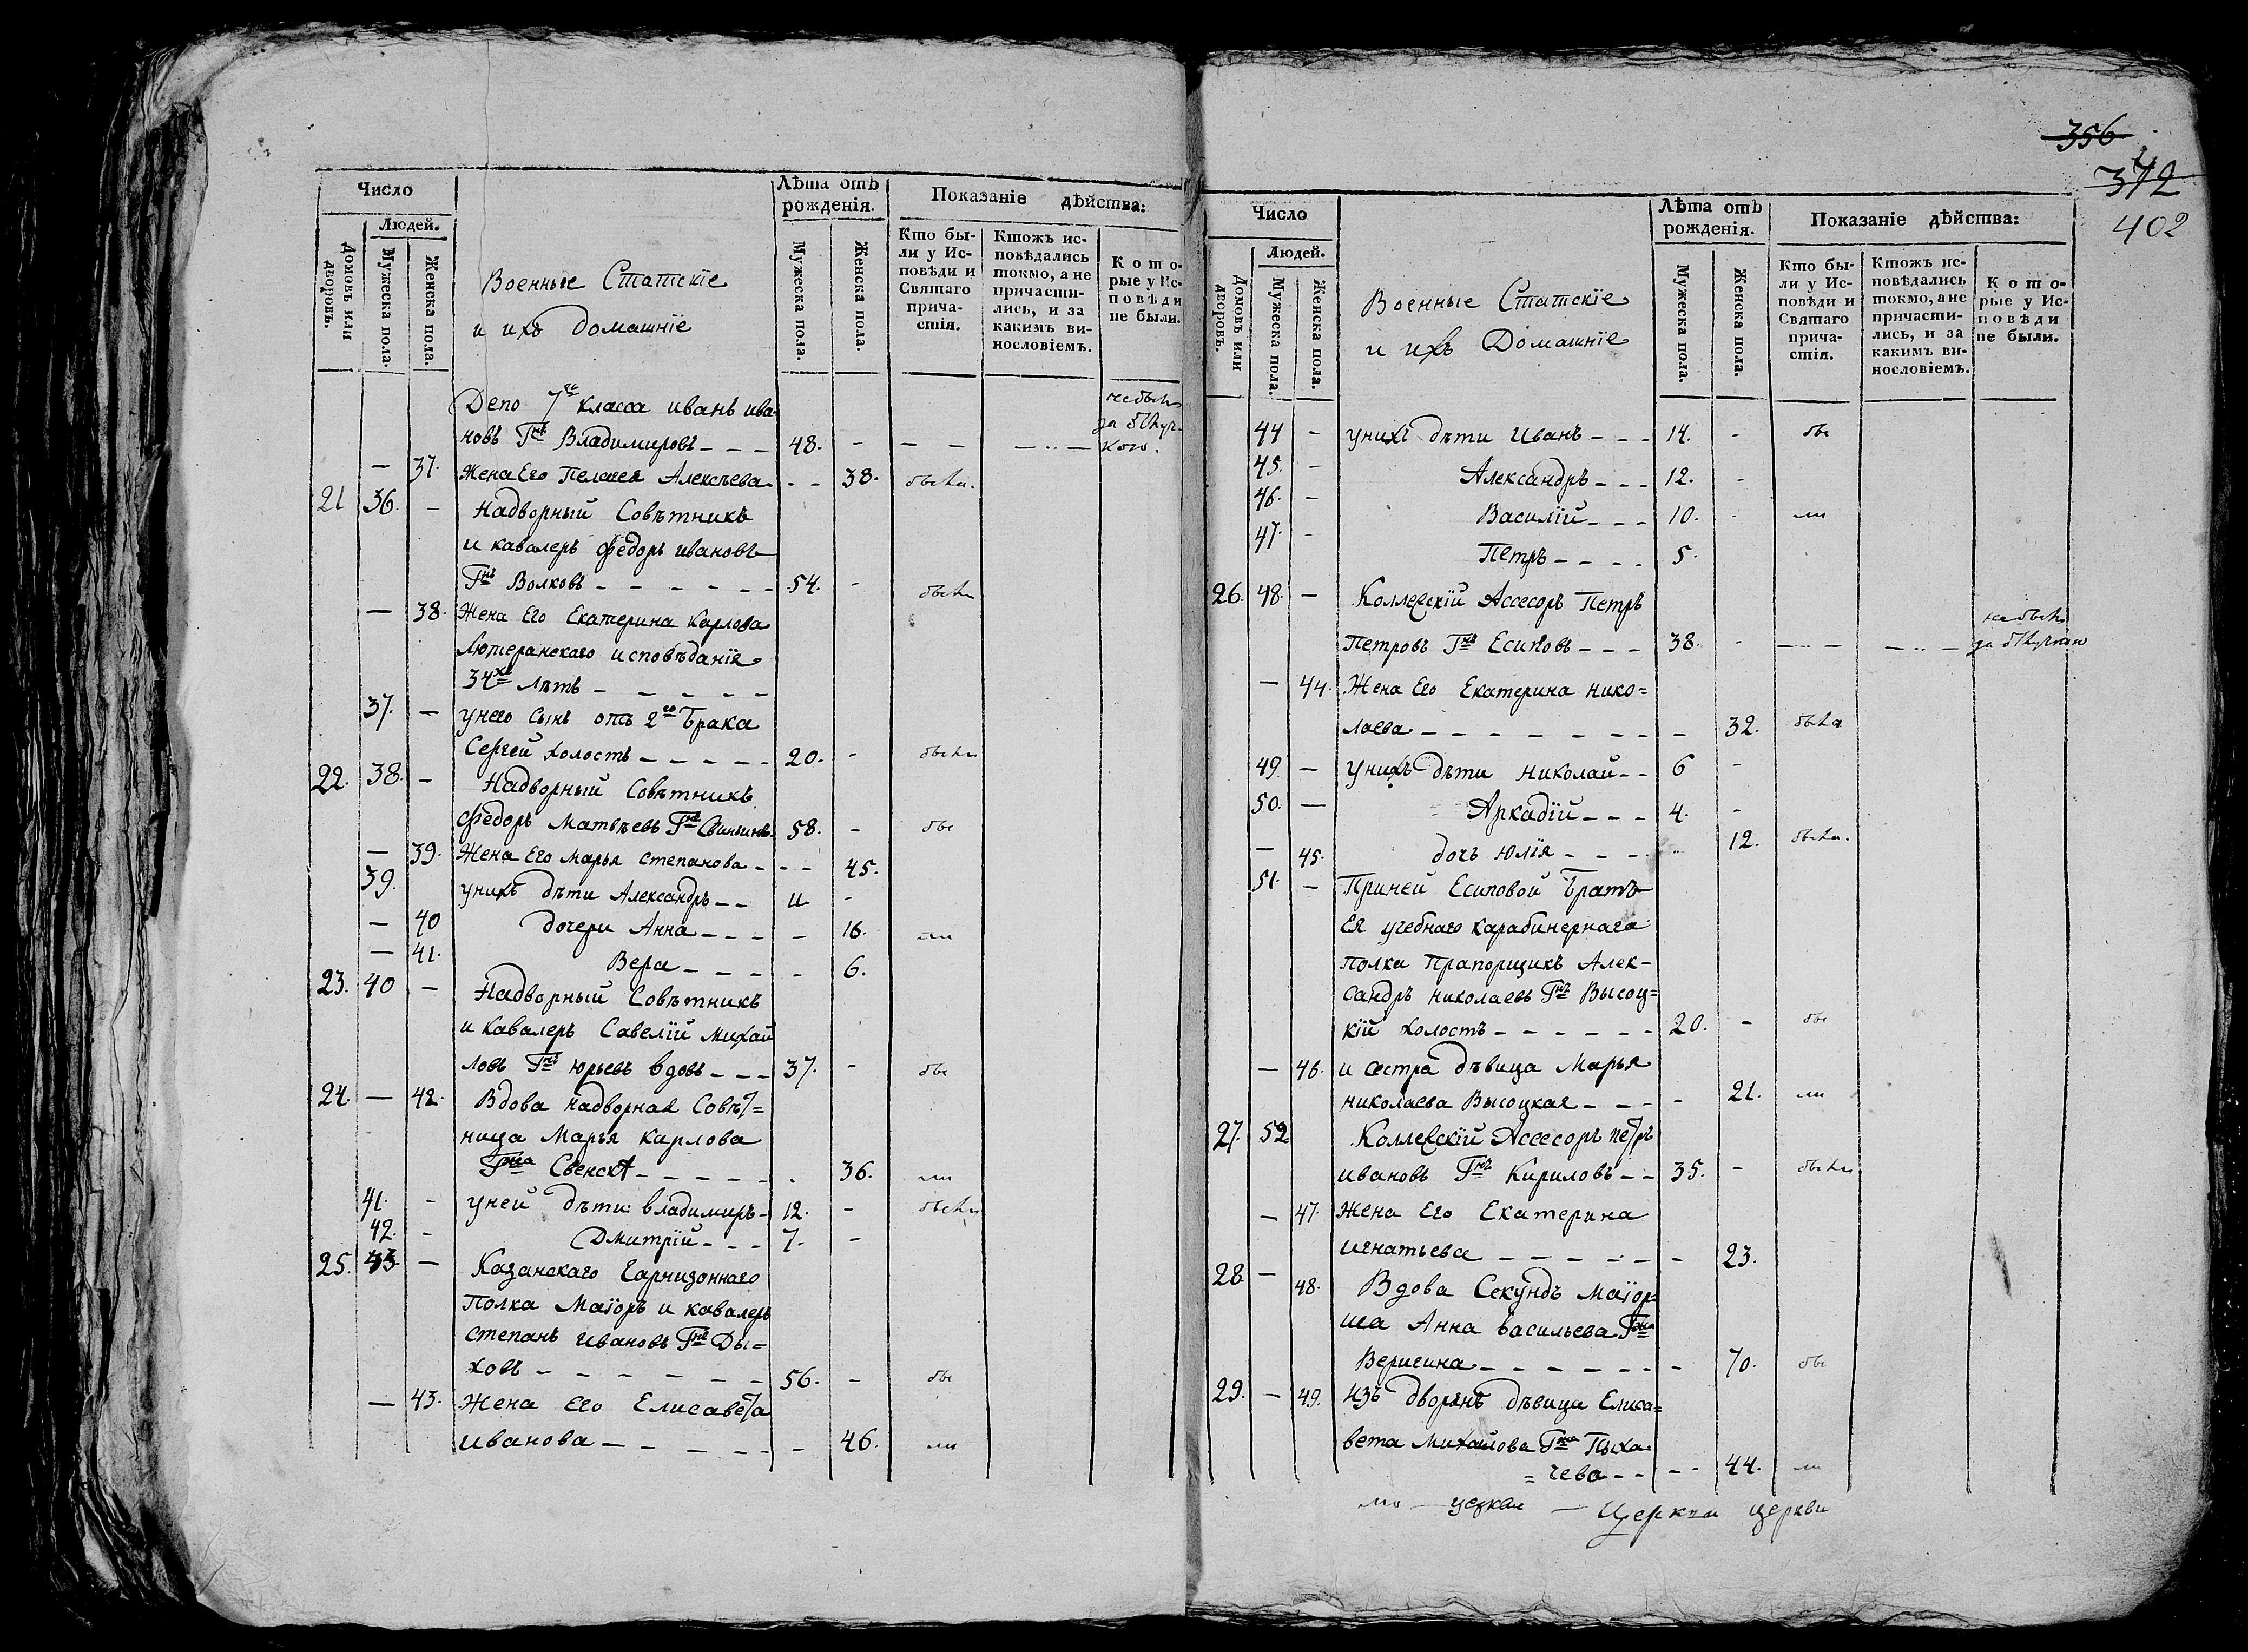 Число
Людей.
Домовъ или дворовъ.
Мужеска пола.
Женска пола.
Военные Статскіе
и ихъ домашніе
Лѣта отъ рожденія.
Мужеска пола.
Женска пола.
Показаніе дѣйства:
Кто бы-
ли у Ис-
повѣди и
Святаго
прича-
стія.
Ктожъ ис-
повѣдались
токмо, а не
причасти-
лись, и за
какимъ ви-
нословіемъ.
Кото-
рые у Ис-
повѣди
не были.
Депо 7го класса иванъ ива-
новъ Гнъ Владимировъ 48. - не былъ за отлуч-кою.
- 37. Жена Его Пелагея Алексѣева - 38. была.
21 36. - Надворный Совѣтникъ
и кавалеръ федоръ ивановъ
Гнъ Волковъ 54. - былъ
- 38. Жена Его Екатерина Карлова
Лютеранскаго исповѣданія
34хъ Лѣтъ
37. - унего Сынъ отъ 2го Брака
Сергей холостъ 20. - былъ
22. 38. - Надворный Совѣтникъ
федоръ Матвѣевъ Гнъ Свиньинъ 58. - бы
- 39. Жена Его Марья степанова - 45.
39. унихъ дѣти Александръ 11 -
- 40 дочери Анна - 16. ли
- 41. Вера - 6.
23. 40 - Надворный Совѣтникъ
и Кавалеръ Савелій Михай
ловъ Гнъ юрьевъ вдовъ 37. - бы
24. - 42. Вдова надворная Совѣт=
ница Марья карлова
Гжа Свенскт 36. ли
41. - уней дѣти владимиръ 12. - былъ
42. - Дмитрій 7. -
25. 43 - Казанскаго Гарнизоннаго
Полка Маіоръ и кавалеръ
степанъ ивановъ Гнъ Ды=
ховъ 56. - бы
- 43. Жена Его Елисавета
иванова - 46. ли
356
372
402
Число
Людей.
Домовъ или дворовъ.
Мужеска пола.
Женска пола.
Военные Статскіе
и ихъ Домашніе
Лѣта отъ рожденія.
Мужеска пола.
Женска пола.
Показаніе дѣйства:
Кто бы-
ли у Ис-
повѣди и
Святаго
прича-
стія.
Ктожъ ис-
повѣдались
токмо, а не
причасти-
лись, и за
какимъ ви-
нословіемъ.
Кото-
рые у Ис-
повѣди
не были.
44 - унихъ дѣти Иванъ 14. - бы
45. - Александръ 12. -
46. - Василій 10. - ли
47. - Петръ 5.
26. 48. - Коллегскій Ассесоръ Петръ
Петровъ Гнъ Есиповъ 38. - не былъ за отлучкою
- 44. Жена Его Екатерина нико=
лаева - 32. была
49. - Унихъ дѣти николай 6 -
50. - Аркадій 4. -
- 45. дочь юлія 12. была.
51. - Приней Есиповой Братъ
Ея учебнаго карабинернаго
полка Прапорщикъ Алек-
сандръ николаевъ Гнъ Высоц=
кій холостъ 20. - бы
- 46. и сестра дѣвица Марья
николаева Высоцкая - 21. ли
27. 52 Коллегскій Ассесоръ петръ
ивановъ Гнъ Кириловъ 35. - былъ
- 47. Жена Его Екатерина
игнатьева - 23.
28. - 48. Вдова Секундъ Маіор=
ша Анна васильева Гжа
Веригина - 70. бы
29. - 49. Изъ дворянъ дѣвица Елиса=
вета Михайлова Гжа Пыха=
=чева - 44. ли
церкви Церкви церкви